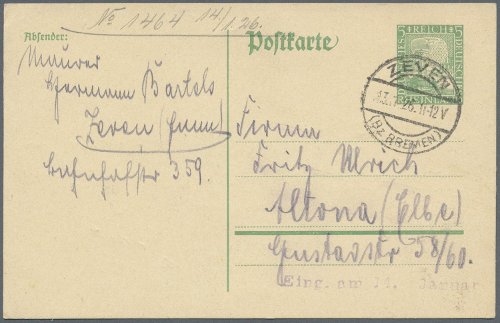 No 1464 14/1.26.
Absender:
Maurer
Hermann Bartels
Zeven (Hann)
Bahnhofstr 359.
Postkarte
DEUTSCHES REICH
5 5
ZEVEN
13.1.26.11-12V
(BZ BREMEN)
Firma
Fritz Ulrich
Altona (Elbe)
Gustavstr 58/60.
Eing. am 14. Januar